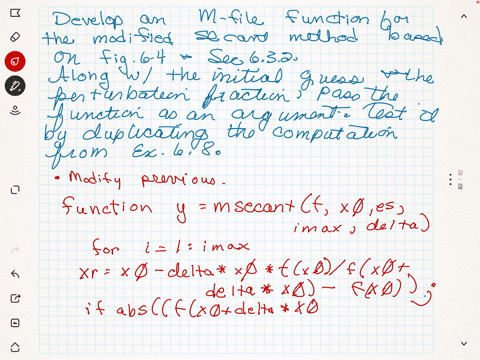 Develop an M-file function for
the modified secant method based
on fig. 6.4 & Sec 6.3.2.
Along w/ the initial guess & the
perturbation fraction, pass the
function as an argument. Test it
by duplicating the computation
from Ex. 6.8.
• Modify previous.
function y = msecant(f, x0, es,
imax, delta)
for i = 1: imax
xr = x0 - delta * x0 * f(x0)/f(x0+
delta * x0) - f(x0));
if abs((f(x0+delta * x0